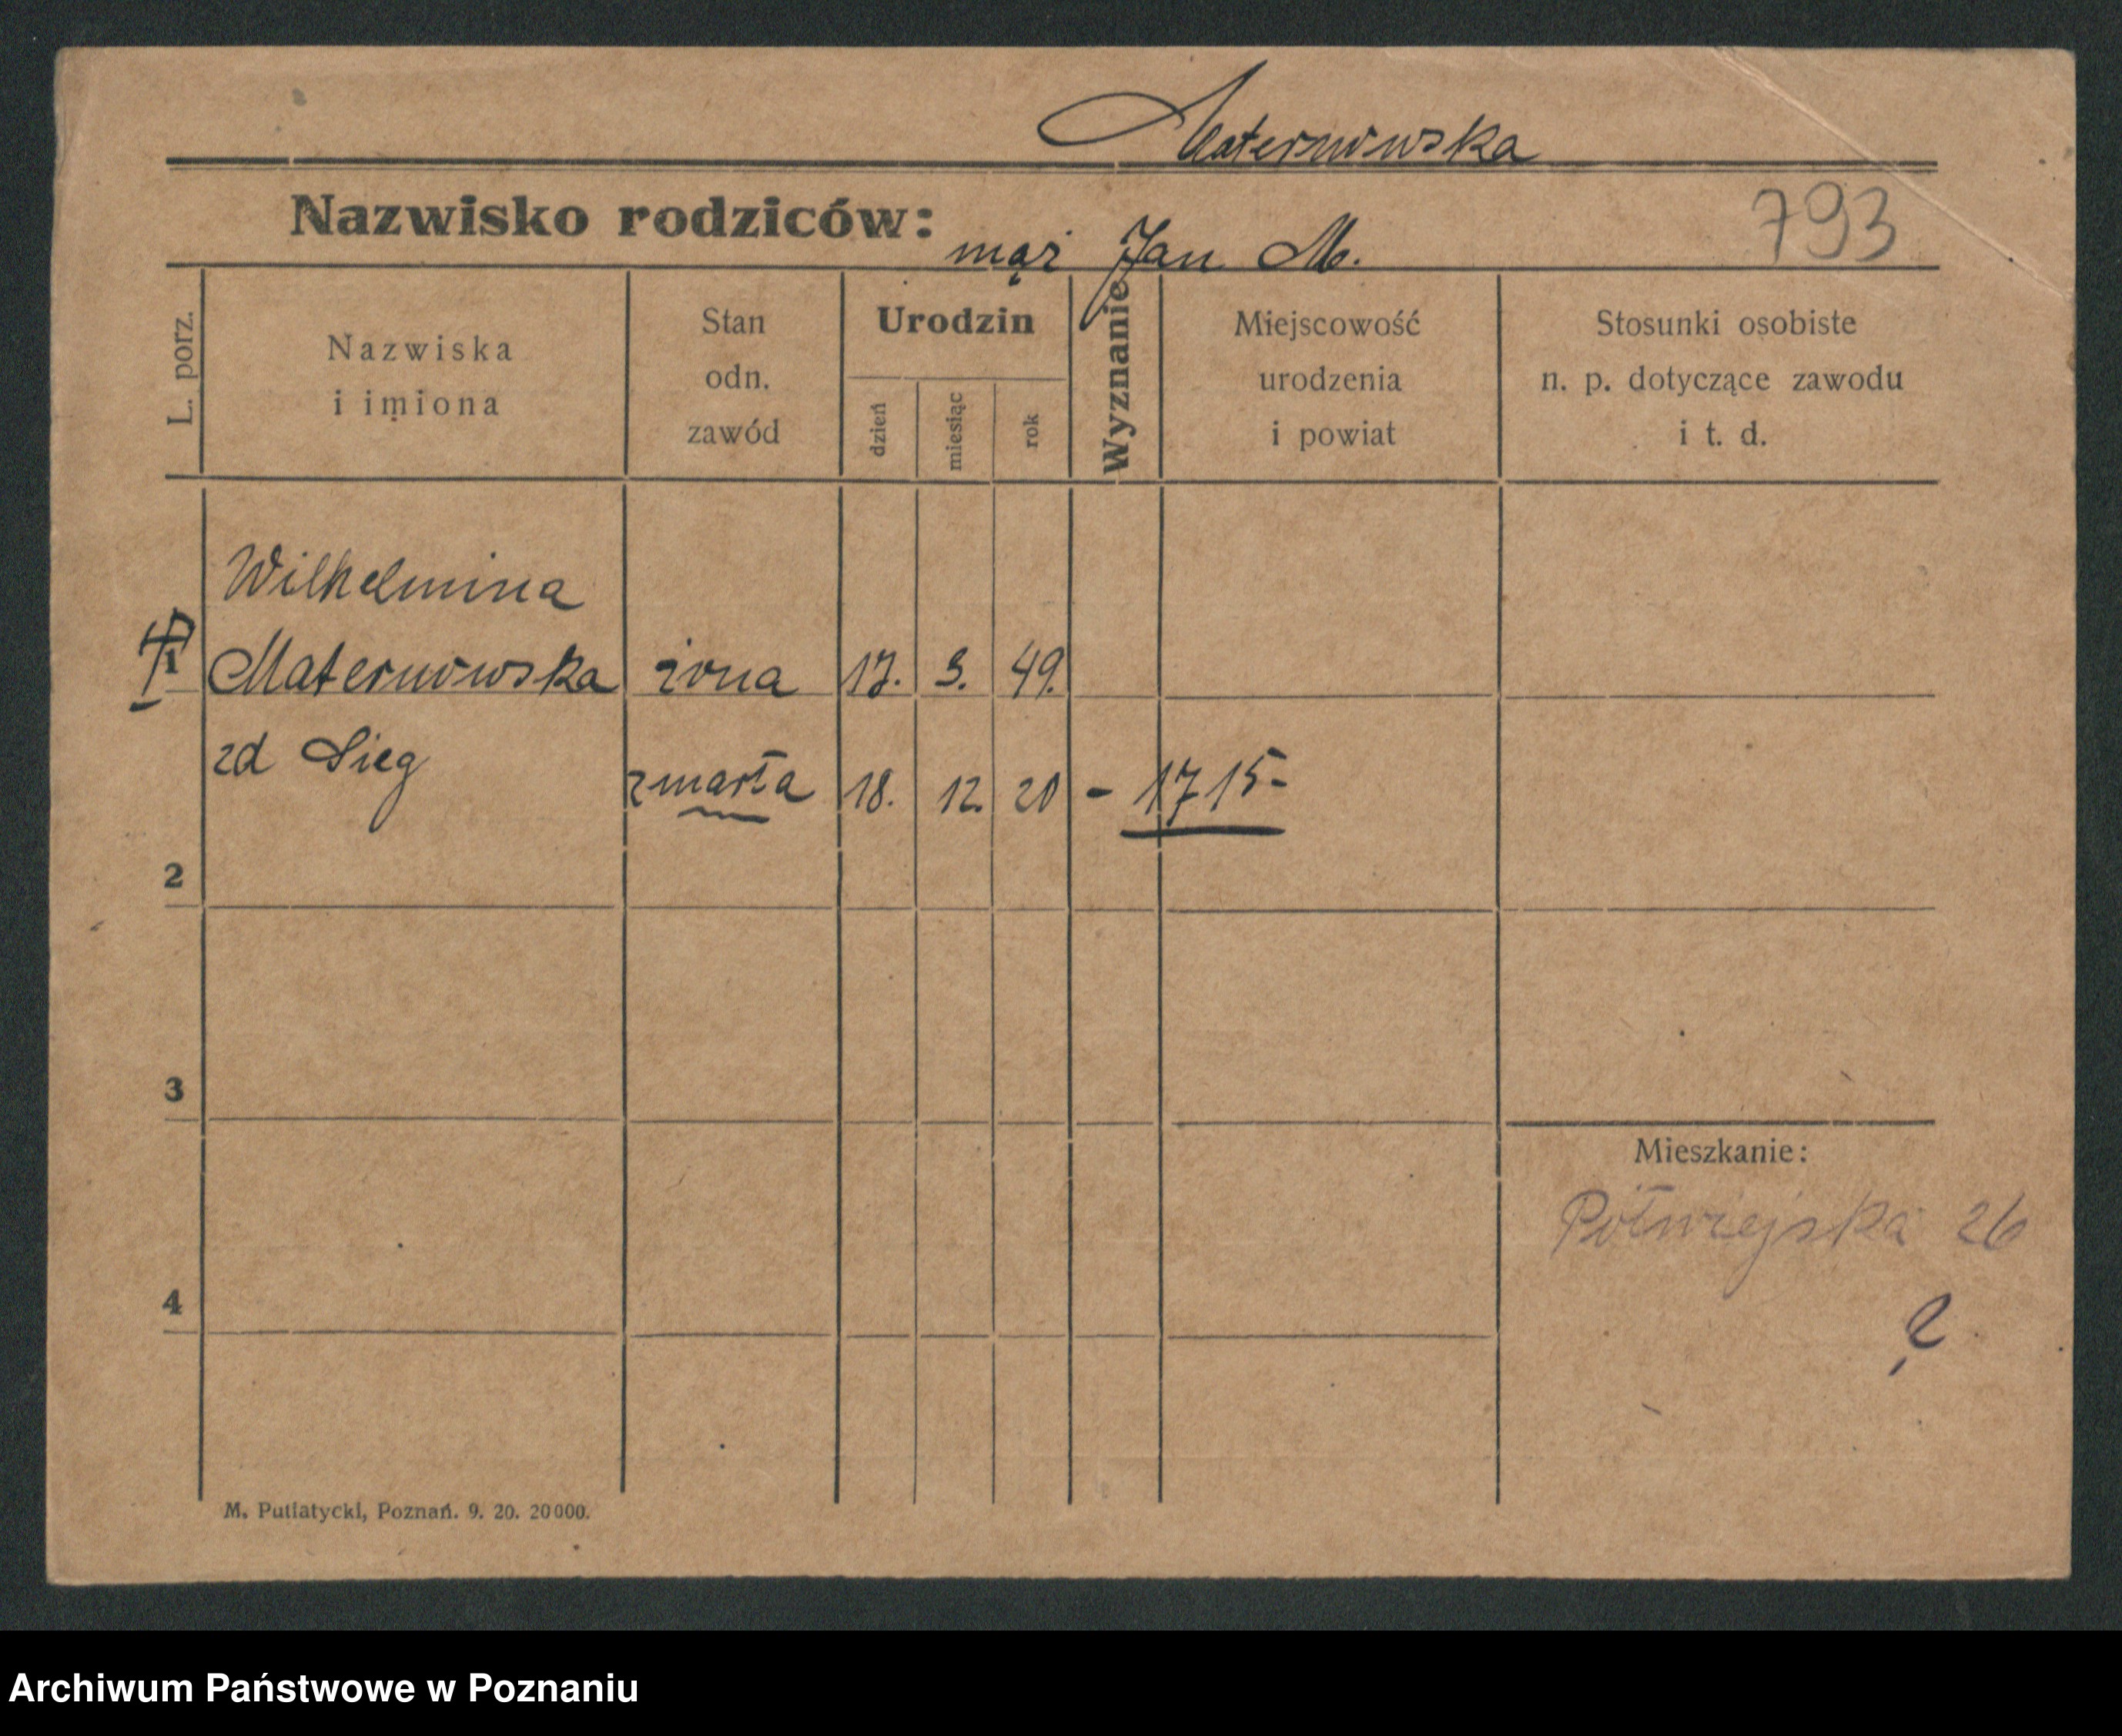 Maternowska
Nazwisko rodziców: mąż Jan M.
793
L. porz.
Nazwiska
i imiona
Stan
odn.
zawód
Urodzin
dzień
miesiąc
rok
Wyznanie
Miejscowość
urodzenia
i powiat
Stosunki osobiste
n. p. dotyczące zawodu
i t. d.
Wilhelmina
1 Maternowska żona 17. 3. 49.
zd Sieg
zmarła 18. 12. 20 - 1715-
2
3
Mieszkanie:
Półwiejska 26
4
?
M. Putiatycki, Poznań. 9. 20. 20000.
Archiwum Państwowe w Poznaniu